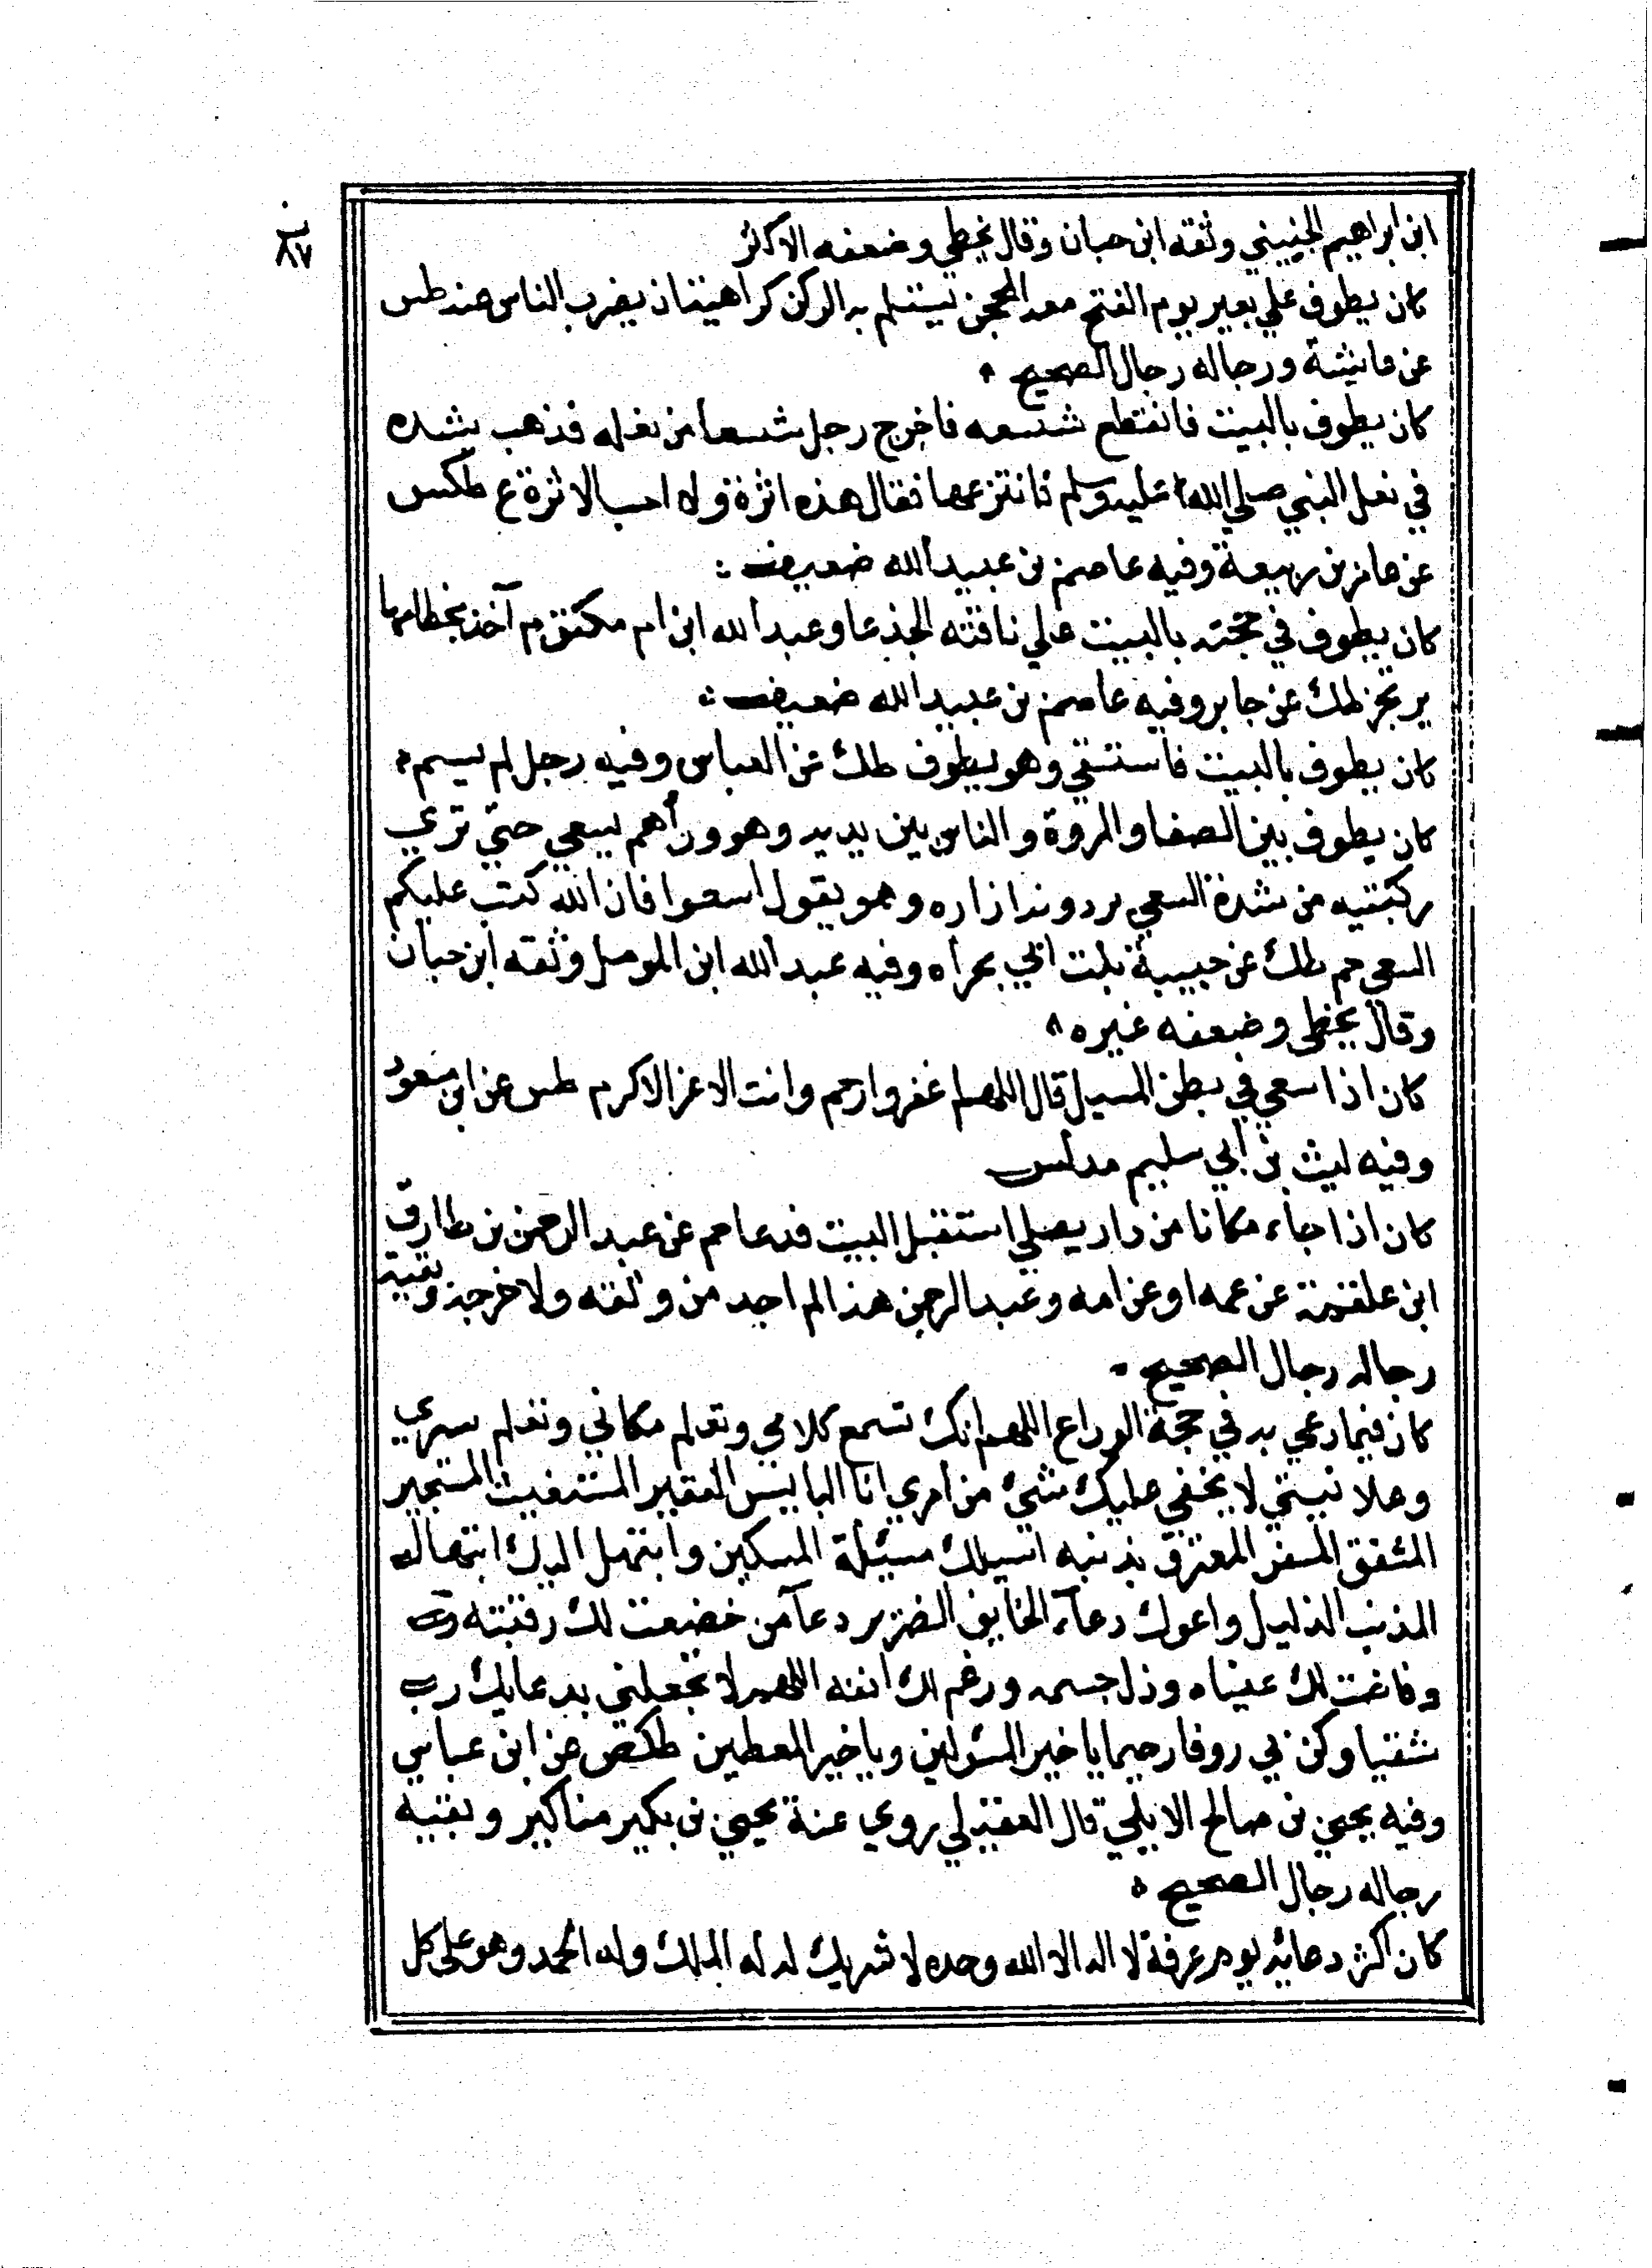 ٨٧
ابن ابراهيم الحنيني وثقه ابن حبان وقال يخطي وضعفه الاكثر
كان يطوف علي بعير يوم الفتح معه المحجن يستلم به الركن كراهية ان يضرب الناس عنه طس
عن عائشة ورجاله رجال الصحيح
كان يطوف بالبيت فانقطع شسعه فاخرج رجل شسعا من نعله فذهب يشده
في نعل النبي صلي الله عليه وسلم فانتزعها فقال هذه اثرة ولا احب الاثرة ع طكس
عن عامر بن ربيعة وفيه عاصم بن عبيد الله ضعيف
كان يطوف في حجته بالبيت علي ناقته الجذعا وعبد الله ابن ام مكتوم آخذ بخطامها
يرتجز طك عن جابر وفيه عاصم بن عبيد الله ضعيف
كان يطوف بالبيت فاستسقي وهو يطوف طك عن العباس وفيه رجل لم يسم
كان يطوف بين الصفا والمروة والناس بين يديه وهو ورأهم يسعي حتي تري
ركبتيه من شدة السعي يرد وندا زاره وهو يقول اسعوا فان الله كتب عليكم
السعي حم طك عن حبيبة بنت ابي بجراه وفيه عبد الله ابن المومل وثقه ابن حبان
وقال يخطي وضعفه غيره
كان اذا سعي في بطن المسيل قال اللهم اغفر وارحم وانت الاعز الاكرم طس عن ابن مسعود
وفيه ليث بن أبي سليم مدلس
كان اذا جاء مكانا من دار يعلي استقبل البيت فدعا حم عن عبد الرحمن بن طارق
ابن علقمة عن عمه او عن امه وعبد الرحمن هذا لم اجد من وثقه ولا خرجه وبقية
رجاله رجال الصحيح
كان فيما دعي به في حجة الوداع اللهم انك تسمع كلامي وتعلم مكاني وتعلم سري
وعلا نيتي لا يخفي عليك شيئ من امري انا البايس الفقير المستغيث المستجير
المشفق المسفر المعترف بذنبه اسيلك مسيئلة المسكين وابتهل اليك ابتهال
المذنب الذليل وادعوك دعآء الخايف الضرير دعآ من خضعت لك رقبته
وفاضت لك عيناه وذل جسمه ورغم لك انفه اللهم لا تجعلني بدعايك رب
شقيا وكن بي روفا رحيما يا خير المسئولين ويا خير المعطين طكص عن ابن عباس
وفيه يحيي بن صالح الايلي قال العقيلي روي عنة يحيي بن بكير مناكير وبقيه
رجاله رجال الصحيح
كان اكثر دعائه يوم عرفة لا اله الا الله وحده لا شريك له له الملك وله الحمد وهو علي كل